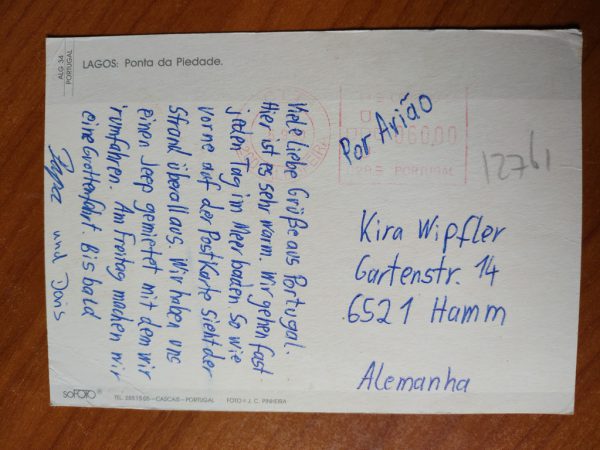 LAGOS: Ponta da Piedade.
ALG-34
PORTUGAL
Viele liebe Grüße aus Portugal.
Hier ist es sehr warm. Wir gehen fast
jeden Tag im Meer baden. So wie
vorne auf der Postkarte sieht der
Strand überall aus. Wir haben uns
einen Jeep gemietet mit dem wir
rumfahren. Am Freitag machen wir
eine Grottenfahrt. Bis bald
Papa und Doris
Por Avião
060,00
PORTUGAL
12761
Kira Wipfler
Gartenstr. 14
6521 Hamm
Alemanha
soFOTO®
CASCAIS - PORTUGAL FOTO: J. C. PINHEIRA